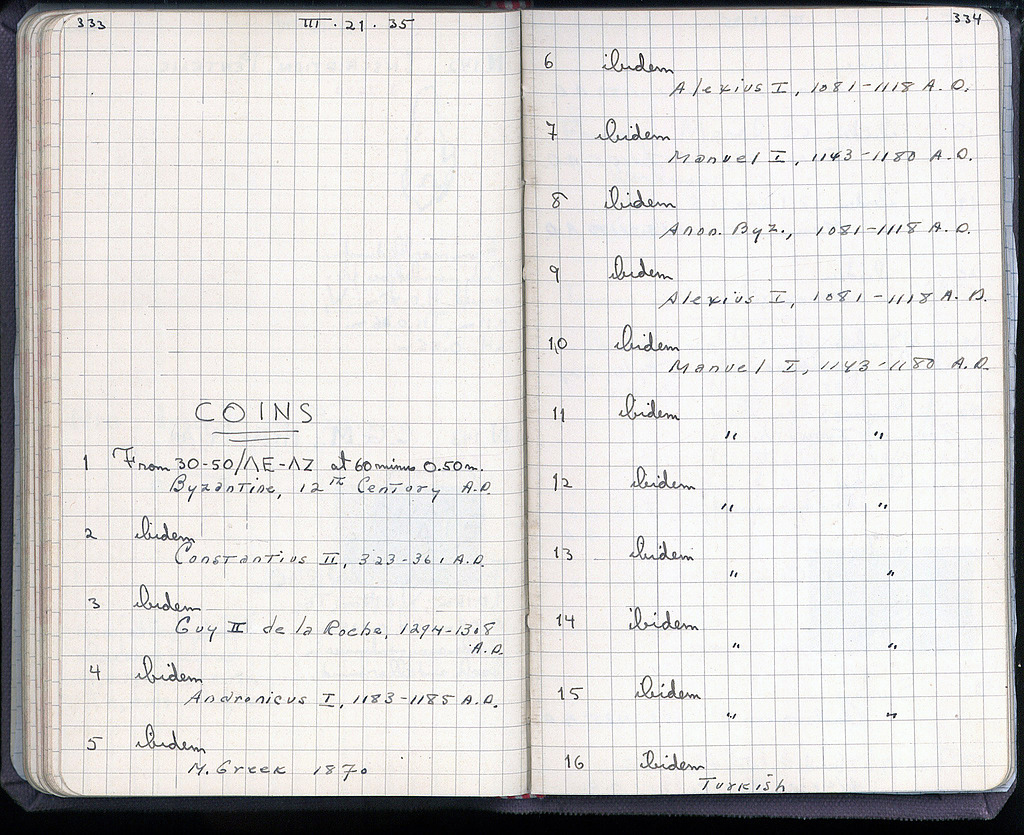 333
III · 21 · 35
COINS
1 From 30-50/ΛE-ΛZ at 60 minus 0.50m.
Byzantine, 12TH Century A.D.
2 ibidem
Constantius II, 323-361 A.D.
3 ibidem
Guy II de la Roche, 1294-1308
A.D.
4 ibidem
Andronicus I, 1183-1185 A.D.
5 ibidem
M. Greek 1870
334
6 ibidem
Alexius I, 1081-1118 A.D.
7 ibidem
Manuel I, 1143-1180 A.D.
8 ibidem
Anon. Byz., 1081-1118 A.D.
9 ibidem
Alexius I, 1081-1118 A.D.
10 ibidem
Manuel I, 1143-1180 A.D.
11 ibidem
" "
12 ibidem
" "
13 ibidem
" "
14 ibidem
" "
15 ibidem
" "
16 ibidem
Turkish